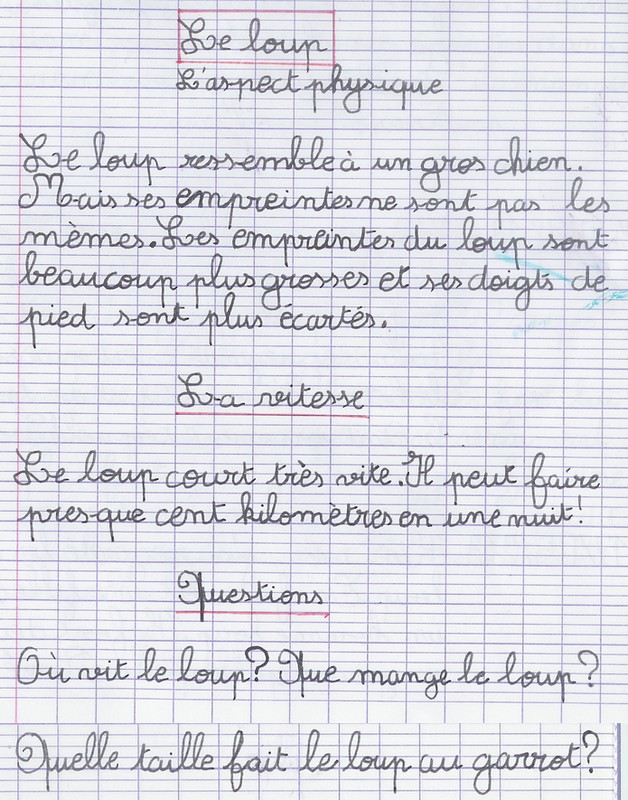 Le loup
L'aspect physique
Le loup ressemble à un gros chien.
Mais ses empreintes ne sont pas les
mèmes. Les empreintes du loup sont
beaucoup plus grosses et ses doigts de
pied sont plus écartés.
La vitesse
Le loup court très vite. Il peut faire
presque cent kilomètres en une nuit!
Questions
Où vit le loup? Que mange le loup?
Quelle taille fait le loup au garrot?